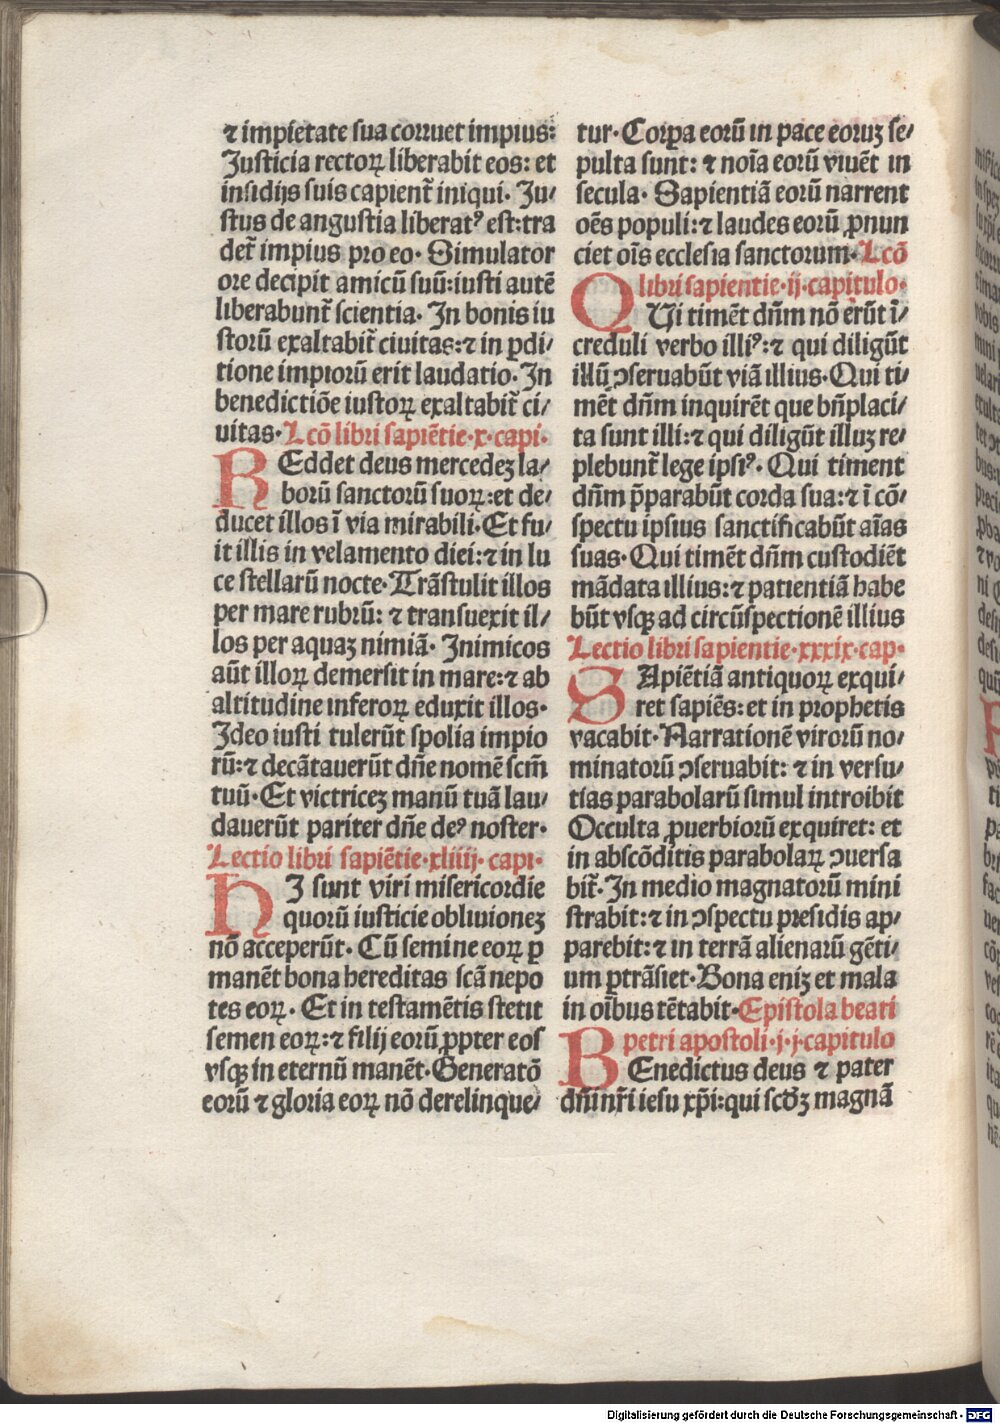 ⁊ impietate sua corruet impius:
Justicia rectoꝝ liberabit eos: et
insidijs suis capient̃ iniqui. Ju-
stus de angustia liberatꝰ est:tra
det̃ impius pro eo. Simulator
ore decipit amicū suū:iusti autē
liberabunt̃ scientia. In bonis iu
storū exaltabit̃ ciuitas:⁊ in ꝑdi/
tione impiorū erit laudatio. In
benedictiōe iustoꝝ exaltabit̃ ci/
uitas. Lcō libri sapiētie.x.capi.
REddet deus mercedeꝫ la/
borū sanctorū suoꝝ:et de/
ducet illos ī via mirabili. Et fu/
it illis in velamento diei:⁊ in lu
ce stellarū nocte. Trāstulit illos
per mare rubrū: ⁊ transuexit il/
los per aquaꝫ nimiā. Inimicos
aūt illoꝝ demersit in mare:⁊ ab
altitudine inferoꝝ eduxit illos.
Ideo iusti tulerūt spolia impio
rū:⁊ decātauerūt dñe nomē scm̄
tuū. Et victriceꝫ manū tuā lau/
dauerūt pariter dñe deꝰ noster.
Lectio libri sapiētie.xliiij. capi.
HI sunt viri misericordie
quorū iusticie obliuioneꝫ
nō acceperūt. Cū semine eoꝝ ꝑ
manēt bona hereditas scā nepo
tes eoꝝ. Et in testamētis stetit
semen eoꝝ:⁊ filij eorū ꝓpter eos
vsqꝫ in eternū manēt. Generatō
eorū ⁊ gloria eoꝝ nō derelinque/
tur. Corꝑa eorū in pace eoruꝫ se/
pulta sunt: ⁊ noīa eorū viuēt in
secula. Sapientiā eorū narrent
oēs populi:⁊ laudes eorū ꝓnun
ciet oīs ecclesia sanctorum. Lcō
libri sapientie.ij.capitulo.
QUi timēt dñm nō erūt ī/
creduli verbo illiꝰ:⁊ qui diligūt
illū ꝯseruabūt viā illius. Qui ti/
mēt dñm inquirēt que bn̄placi/
ta sunt illi:⁊ qui diligūt illuꝫ re/
plebunt̃ lege ipsiꝰ. Qui timent
dñm p̄parabūt corda sua:⁊ ī cō/
spectu ipsius sanctificabūt aīas
suas. Qui timēt dñm custodiēt
mādata illius:⁊ patientiā habe
būt vsqꝫ ad circūspectionē illius
Lectio libri sapientie.xxxix.cap.
SApiētiā antiquoꝝ exqui/
ret sapiēs: et in prophetis
vacabit. Narrationē virorū no/
minatorū ꝯseruabit: ⁊ in versu/
tias parabolarū simul introibit
Occulta ꝓuerbiorū exquiret: et
in abscōditis parabolaꝝ ꝯuersa
bit̃. In medio magnatorū mini
strabit:⁊ in ꝯspectu presidis ap/
parebit:⁊ in terrā alienarū gēti/
um ꝑtrāsiet. Bona eniꝫ et mala
in oībus tētabit. Epistola beati
petri apostoli.j.j.capitulo
BEnedictus deus ⁊ pater
dñi nr̄i iesu xp̄i:qui scd̄ꝫ magnā
Digitalisierung gefördert durch die Deutsche Forschungsgemeinschaft - DFG